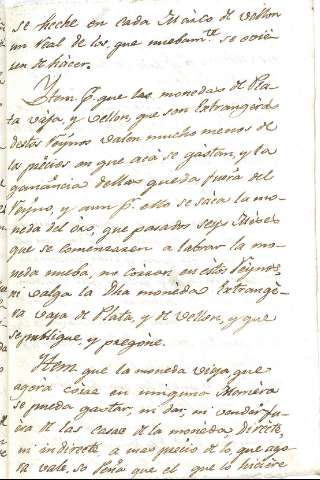 se heche en cada Marco de vellon
un Real de los, que nuebamte. se ovie
sen de hacer.
Yten p.r que las monedas de Pla-
ta vaja, y vellon, que son Extrangera
destos Reynos valen mucho menos de
los precios en que acá se gastan, y la
ganancia dellas queda fuera del
Reyno, y aun p.r ello se saca la mo-
neda del oro, que pasados seys Meses
que se comenzaren a labrar la mo-
neda nueba, no corran en estos Reynos,
ni valga la dha moneda Extrange-
ra vaja de Plata, y de vellon, y que
se publique, y pregone.
Yten que la moneda vieja que
agora corre en ninguna Manera
se pueda gastar, ni dar, ni vender fu-
era de las casas de la moneda, directe,
ni indirecte a mas precio de lo, que ago-
ra vale, so Pena que el que lo hiciere